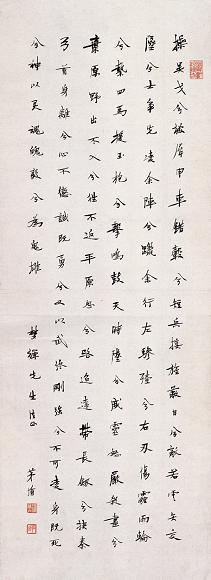 操吳戈兮被犀甲車錯轂兮短兵接旌蔽日兮敵若雲矢交
墜兮士爭先凌余陣兮躐余行左驂殪兮右刃傷霾兩輪
兮縶四馬援玉枹兮擊鳴鼓天時墜兮威靈怒嚴殺盡兮
棄原野出不入兮往不返平原忽兮路超遠帶長劍兮挾秦
弓首身離兮心不懲誠既勇兮又以武終剛強兮不可凌身既死
兮神以靈魂魄毅兮為鬼雄
先生法正
茅盾